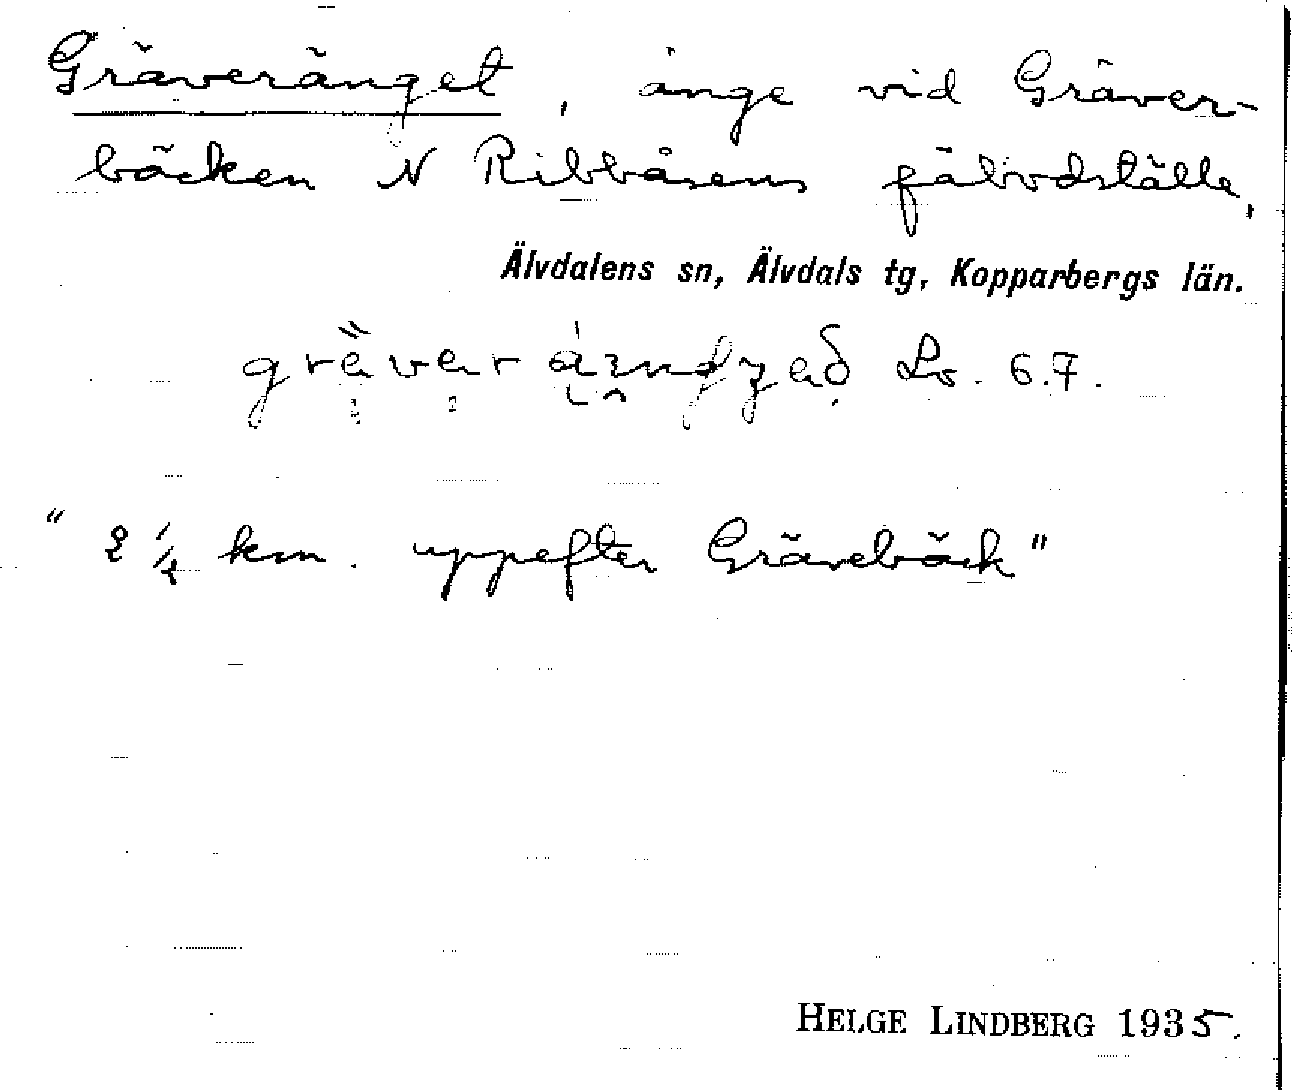 Gräveränget, änge vid Gräver-
bäcken N Ribbåsens fäbodställe,
Älvdalens sn, Älvdals tg, Kopparbergs län.
Lv. 6.7.
" 2 1/2 km. uppefter Gräveback"
HELGE LINDBERG 1935.